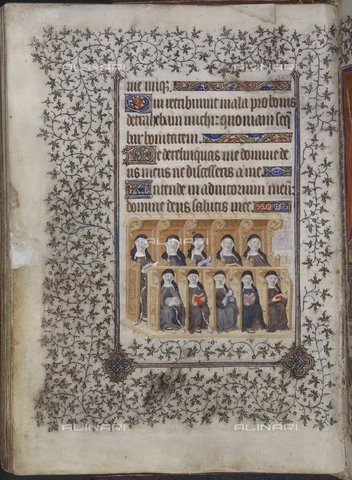 me iniq;
Qui retribuunt mala pro bonis
detrahebant michi: quoniam seq
bar bonitatem.
Ne derelinquas me domine de
us meus ne discesseris a me.
Intende in adiutorium meū
domine deus salutis mee.
ALINARI
ALINARI
ALINARI